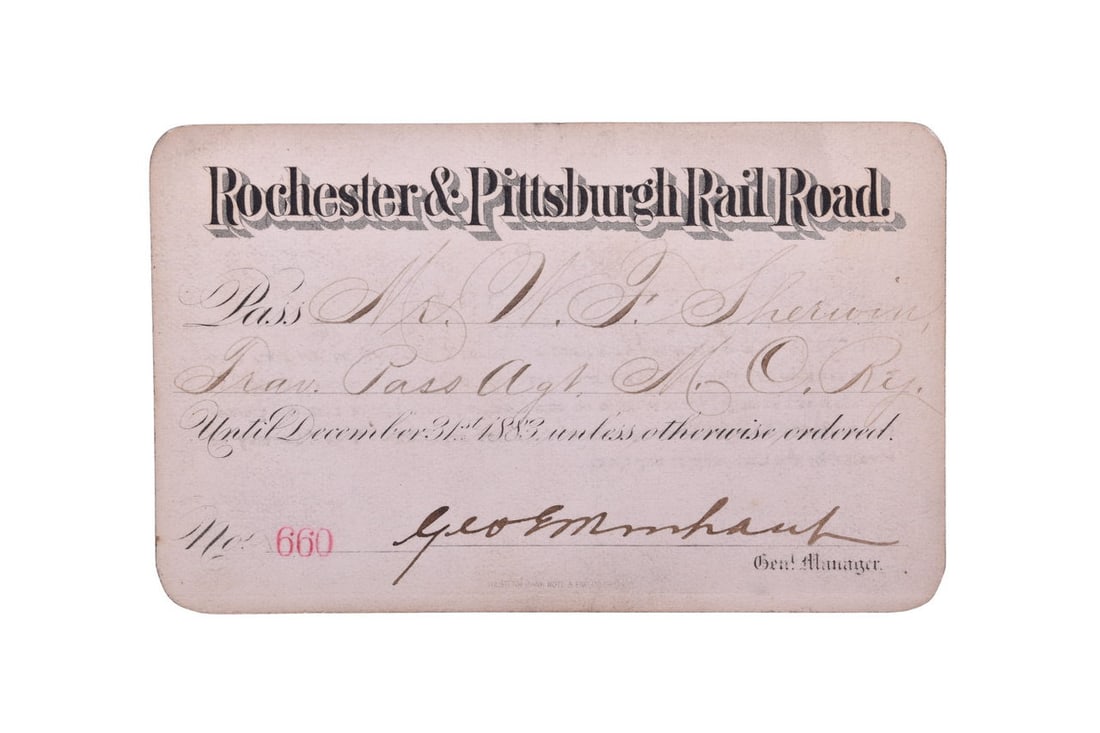 Rochester & Pittsburgh Rail Road.
Pass Mr. W. F. Sherwin,
Trav. Pass Agt. M. O. Ry.
Until December 31st 1883, unless otherwise ordered.
No. 660
Geo E Merchant
Genl. Manager.